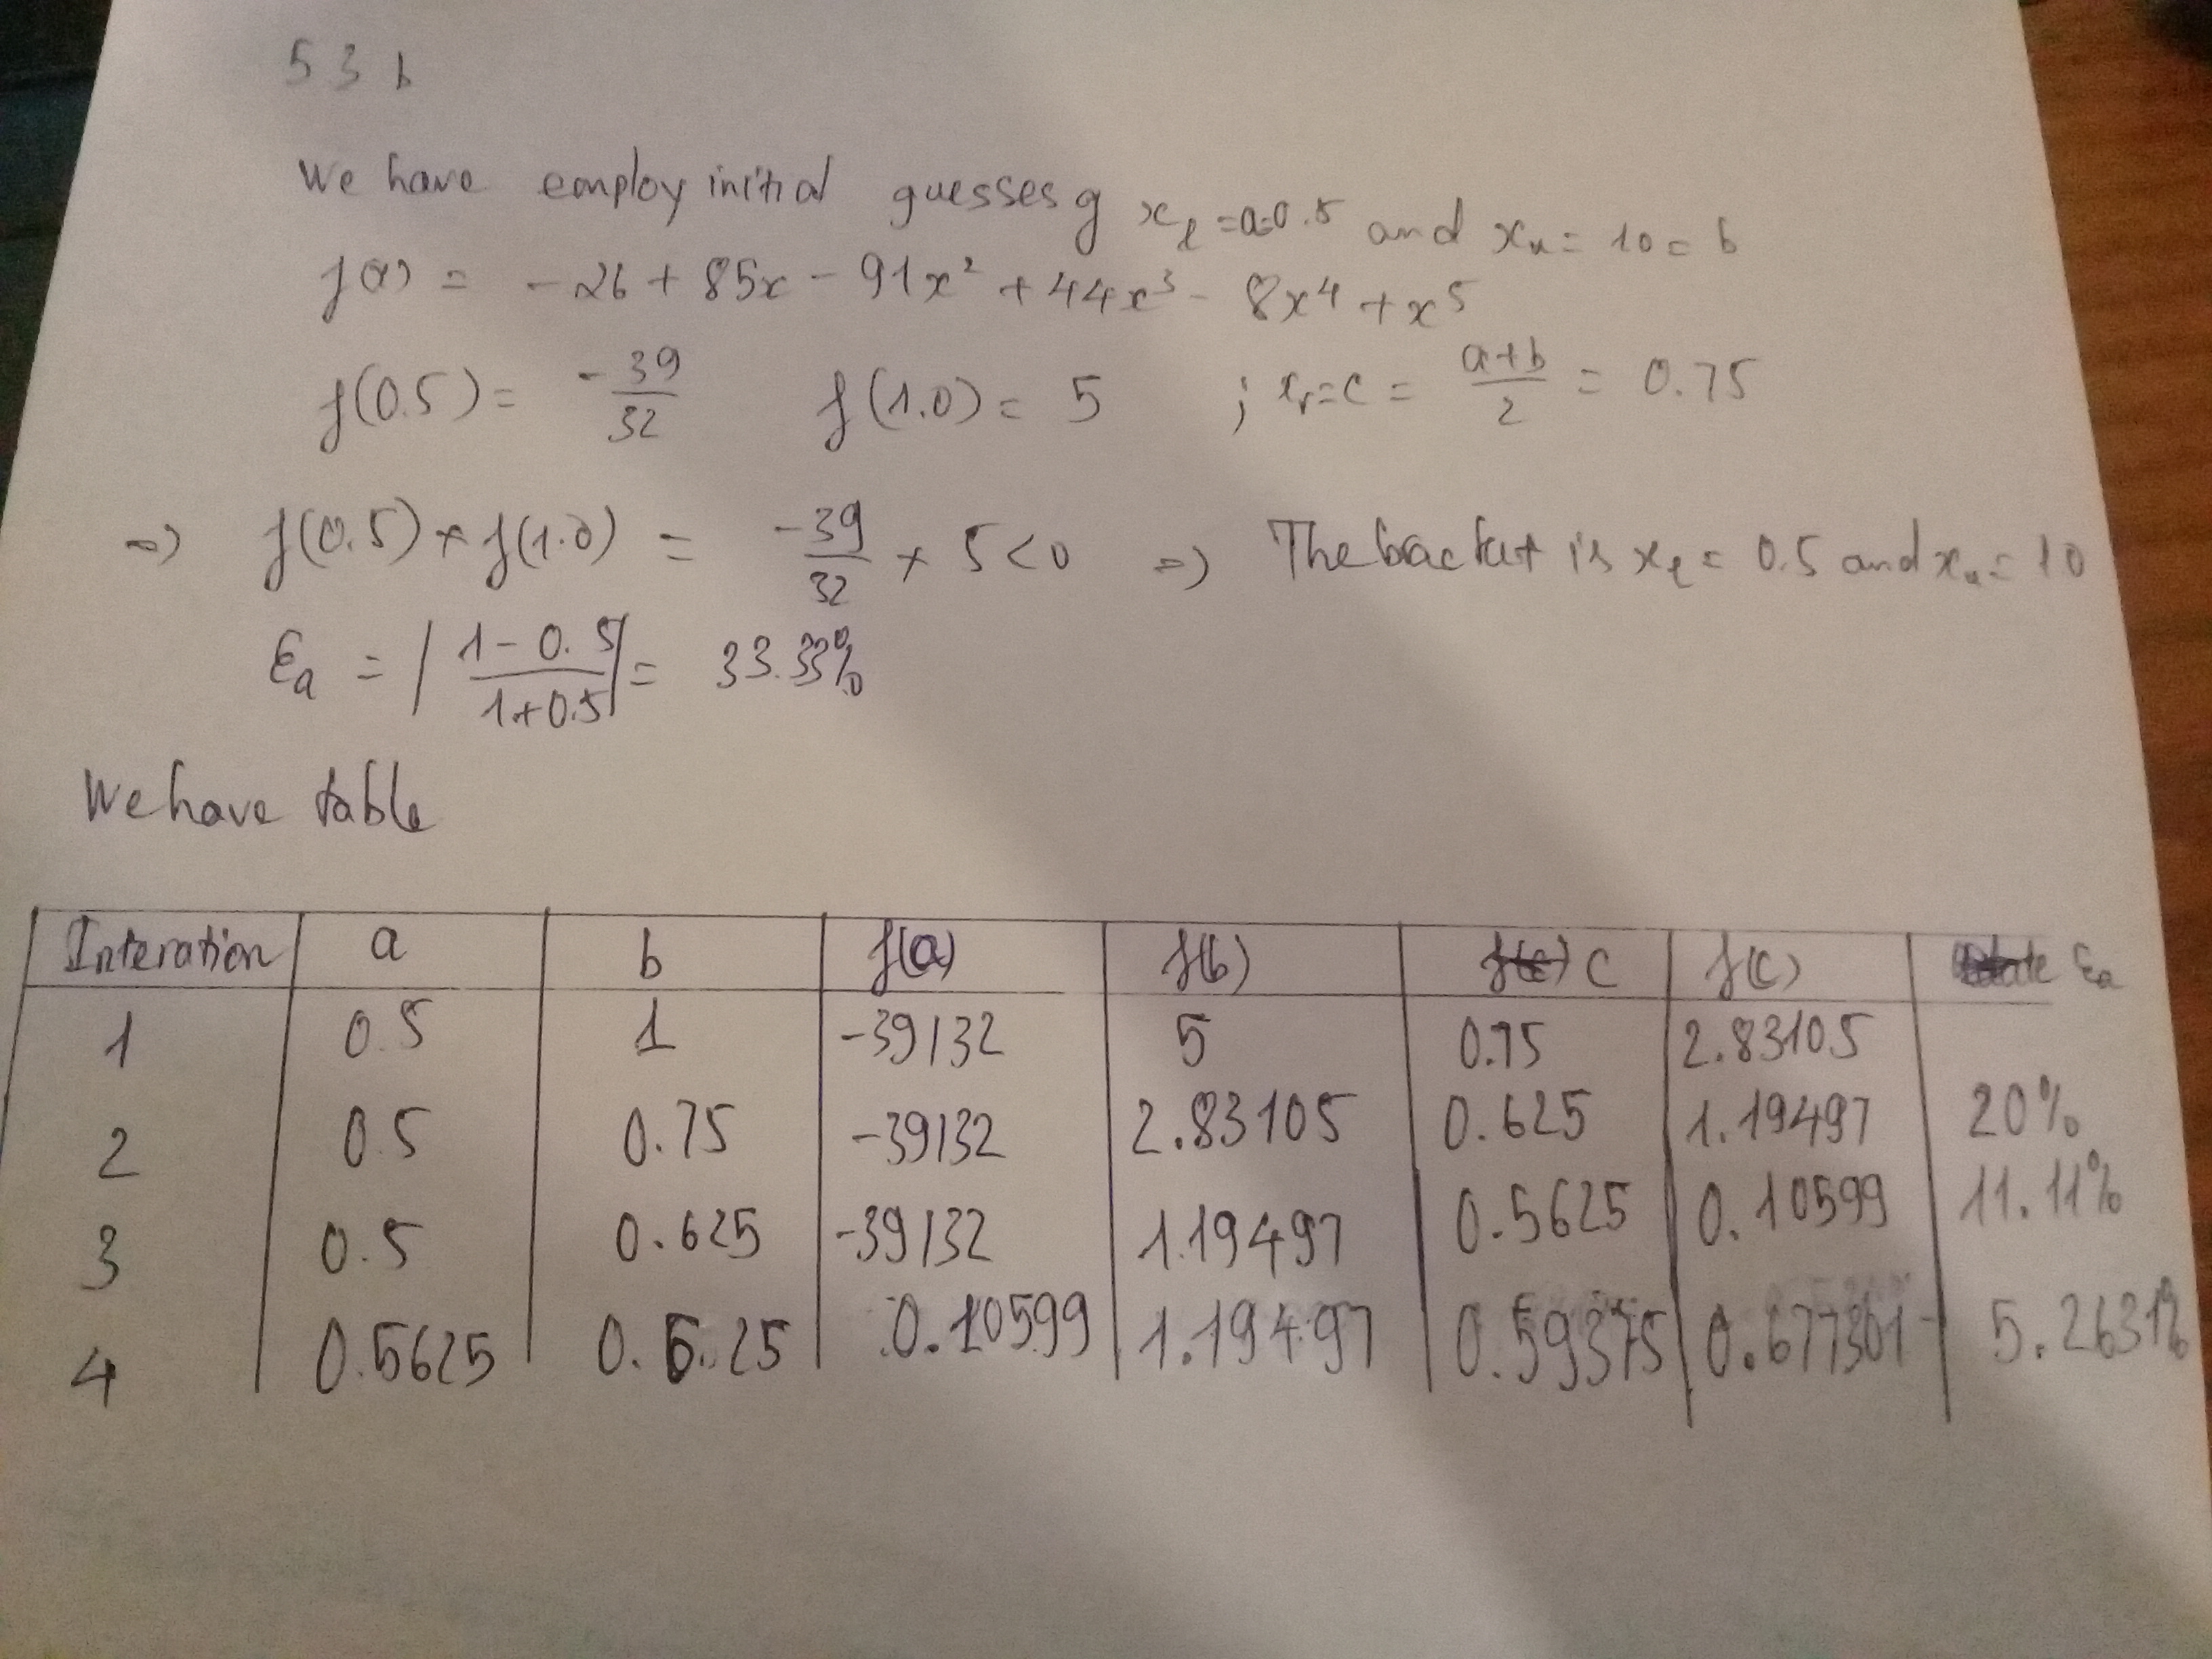 5 3 b
We have employ initial guesses of x_l = a = 0.5 and x_u = 10 = b
f(x) = -26 + 85x - 91x² + 44x³ - 8x⁴ + x⁵
f(0.5) = -39/32 f(1.0) = 5 ; x_r = c = (a+b)/2 = 0.75
=> f(0.5) × f(1.0) = -39/32 × 5 < 0 => The bracket is x_l = 0.5 and x_u = 10
Ɛa = |(1 - 0.5)/(1 + 0.5)| = 33.33%
We have table
Interation a b f(a) f(b) c f(c) Ɛa
1 0.5 1 -39/32 5 0.75 2.83105
2 0.5 0.75 -39/32 2.83105 0.625 1.19497 20%
3 0.5 0.625 -39/32 1.19497 0.5625 0.10599 11.11%
4 0.5625 0.625 0.10599 1.19497 0.59375 0.677301 5.2631%